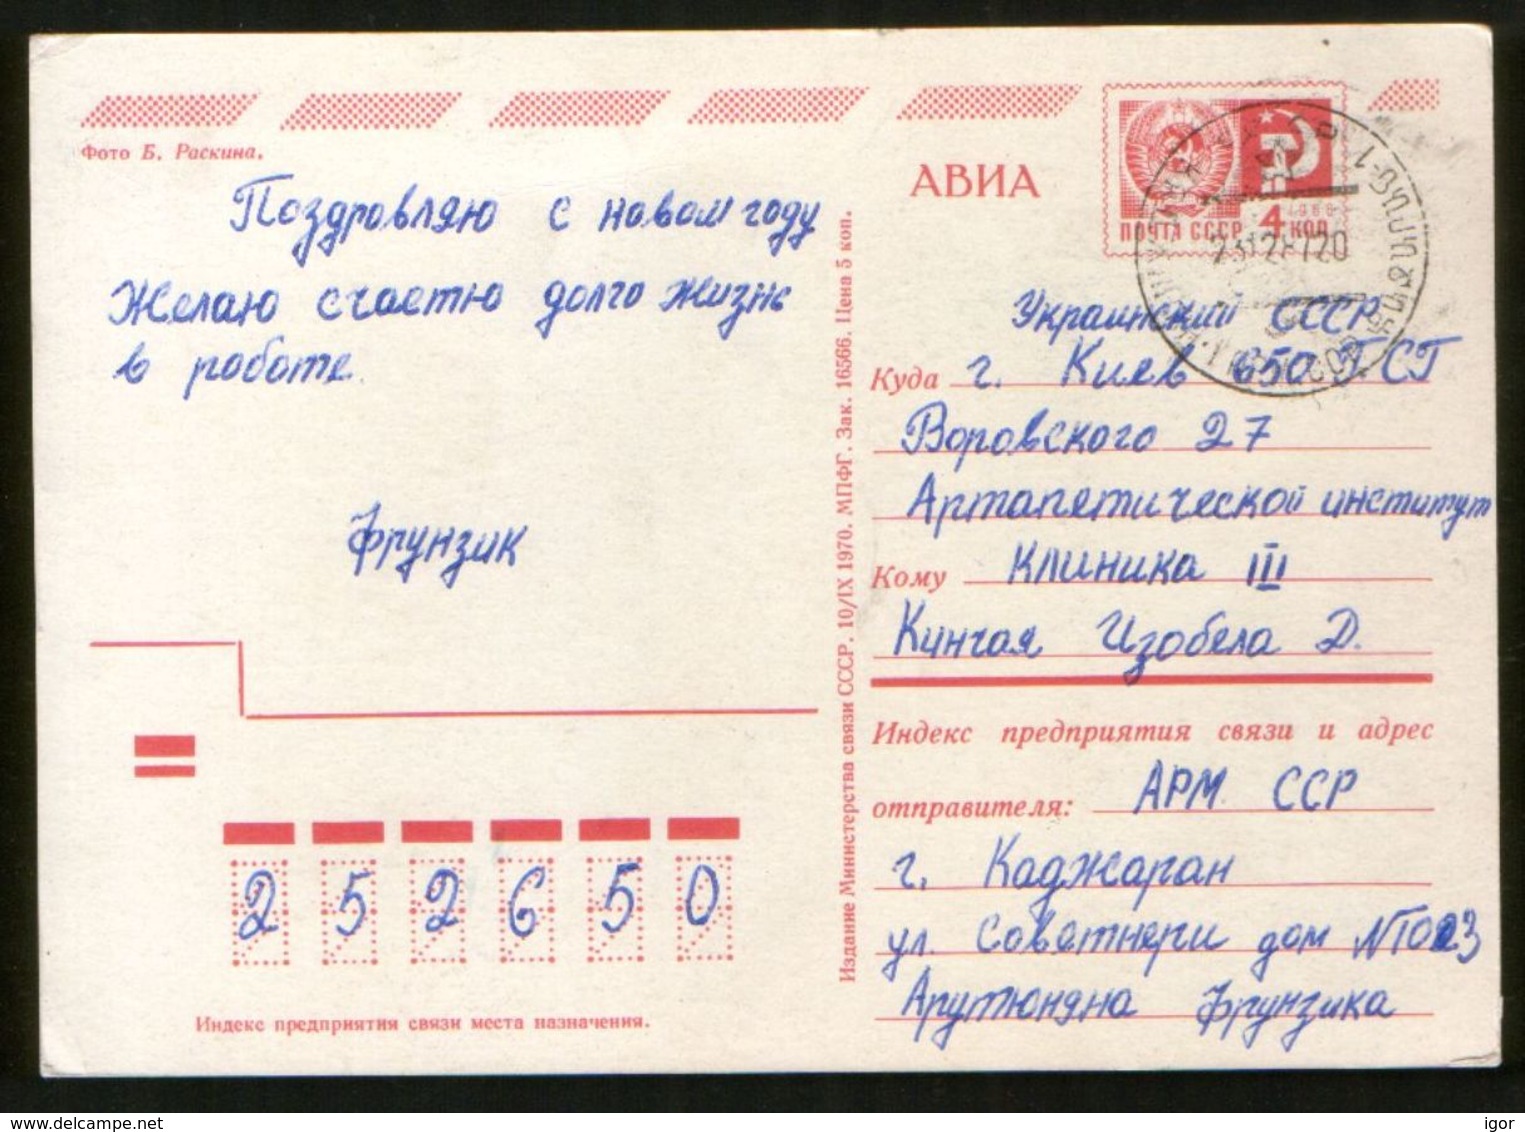 Фото Б. Раскина.
Поздровляю с новом году
Желаю счастю долго жизнь
в роботе
Фрунзик
Индекс предприятия связи места назначения.
252650
Издание Министерства связи СССР. 10/IX 1970. МПФГ. Зак. 16566. Цена 5 коп.
АВИА
ПОЧТА СССР 4 КОП
1966
Украинский СССР
Куда г. Киев 650 ГСТ
Воровского 27
Артапетической институт
Кому Клиника III
Кинчая Изобела Д.
Индекс предприятия связи и адрес
отправителя: АРМ ССР
г. Каджаран
ул. Советнери дом
Фрунзика
delcampe.net
igor